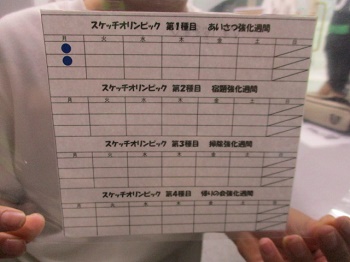 スケッチオリンピック 第1種目 あいさつ強化週間
月 火 水 木 金 土 日
スケッチオリンピック 第2種目 宿題強化週間
月 火 水 木 金 土 日
スケッチオリンピック 第3種目 掃除強化週間
月 火 水 木 金 土 日
スケッチオリンピック 第4種目 帰りの会強化週間
月 火 水 木 金 土 日